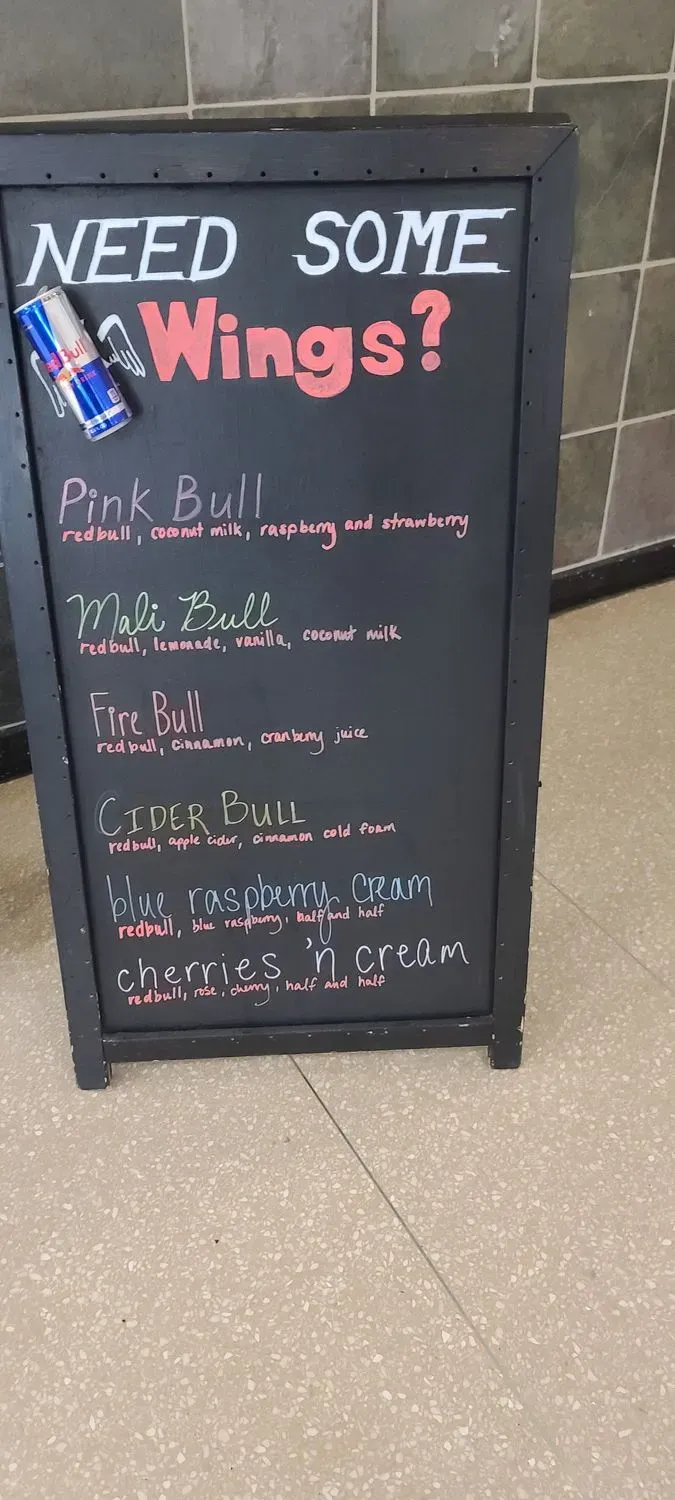 NEED SOME
Wings?
Red Bull
Pink Bull
redbull, coconut milk, raspberry and strawberry
Mali Bull
redbull, lemonade, vanilla, coconut milk
Fire Bull
redbull, cinnamon, cranberry juice
CIDER BULL
redbull, apple cider, cinnamon cold foam
blue raspberry cream
redbull, blue raspberry, half and half
cherries 'n cream
redbull, rose, cherry, half and half